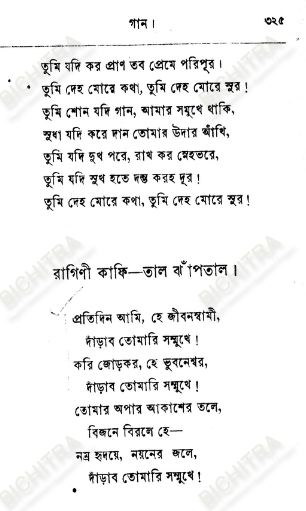 গান।
৩২৫
তুমি যদি কর প্রাণ তব প্রেমে পরিপূর।
তুমি দেহ মোরে কথা, তুমি দেহ মোরে সুর!
তুমি শোন যদি গান, আমার সমুখে থাকি,
সুধা যদি করে দান তোমার উদার আঁখি,
তুমি যদি দুখ পরে, রাখ কর স্নেহভরে,
তুমি যদি সুখ হতে দম্ভ করহ দূর!
তুমি দেহ মোরে কথা, তুমি দেহ মোরে সুর!
রাগিণী কাফি—তাল ঝাঁপতাল।
প্রতিদিন আমি, হে জীবনস্বামী,
দাঁড়াব তোমারি সম্মুখে!
করি জোড়কর, হে ভুবনেশ্বর,
দাঁড়াব তোমারি সম্মুখে!
তোমার অপার আকাশের তলে,
বিজনে বিরলে হে—
নম্র হৃদয়ে, নয়নের জলে,
দাঁড়াব তোমারি সম্মুখে!
BICHITRA
BICHITRA
BICHITRA
BICHITRA
BICHITRA
BICHITRA